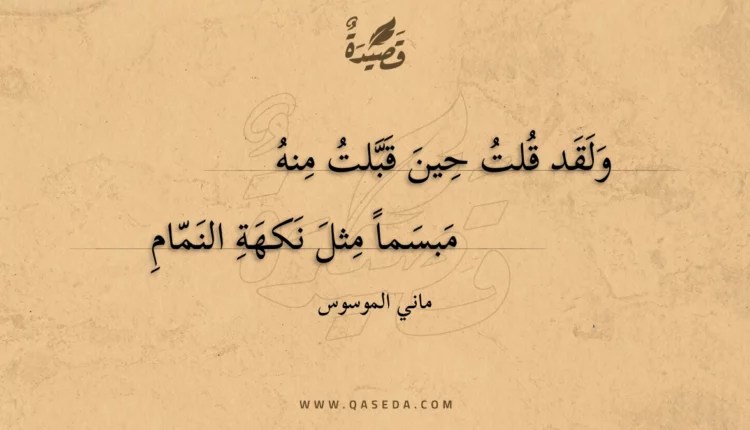 قَصِيْدَةٌ
وَلَقَد قُلتُ حِينَ قَبَّلتُ مِنهُ
مَبسَماً مِثلَ نَكهَةِ النَمّامِ
ماني الموسوس
WWW.QASEDA.COM